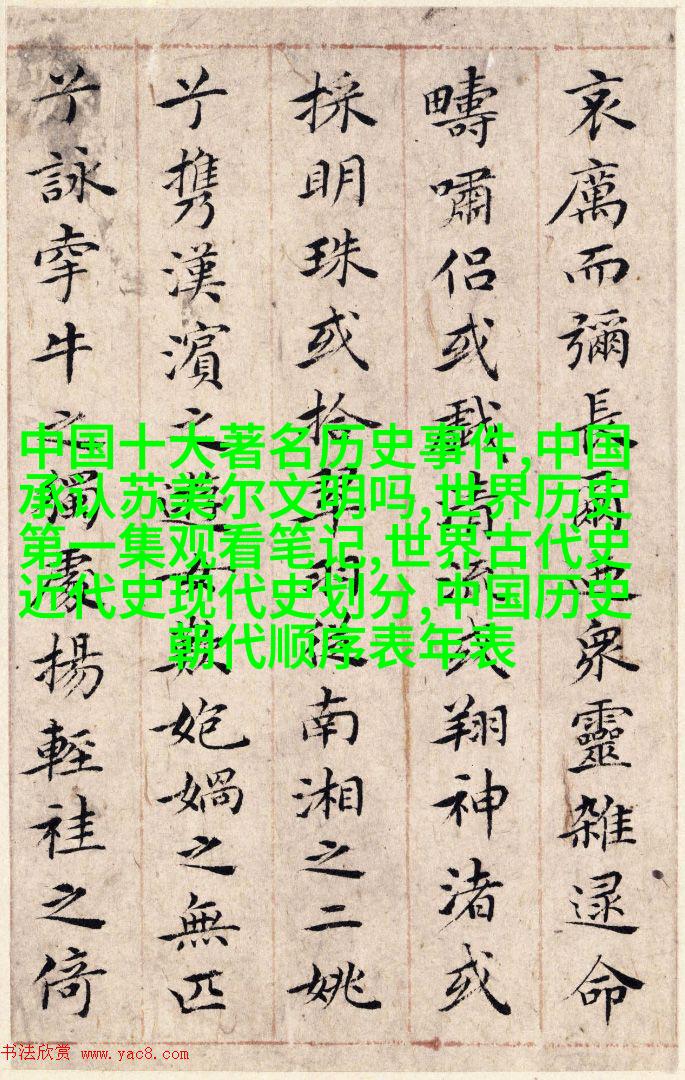 哀厲而彌長爾迺衆靈雜遝命
疇嘯侶或戲清流或翔神渚或
採明珠或拾翠羽從南湘之二姚
兮携漢濱之遊女歎媧之無匹
兮詠牽牛之獨處揚輕袿之倚
中国十大著名历史事件,中国
承认苏美尔文明吗,世界历史
第一集观看笔记,世界古代史
近代史现代史划分,中国历史
朝代顺序表年表
书法欣赏 www.yac8.com